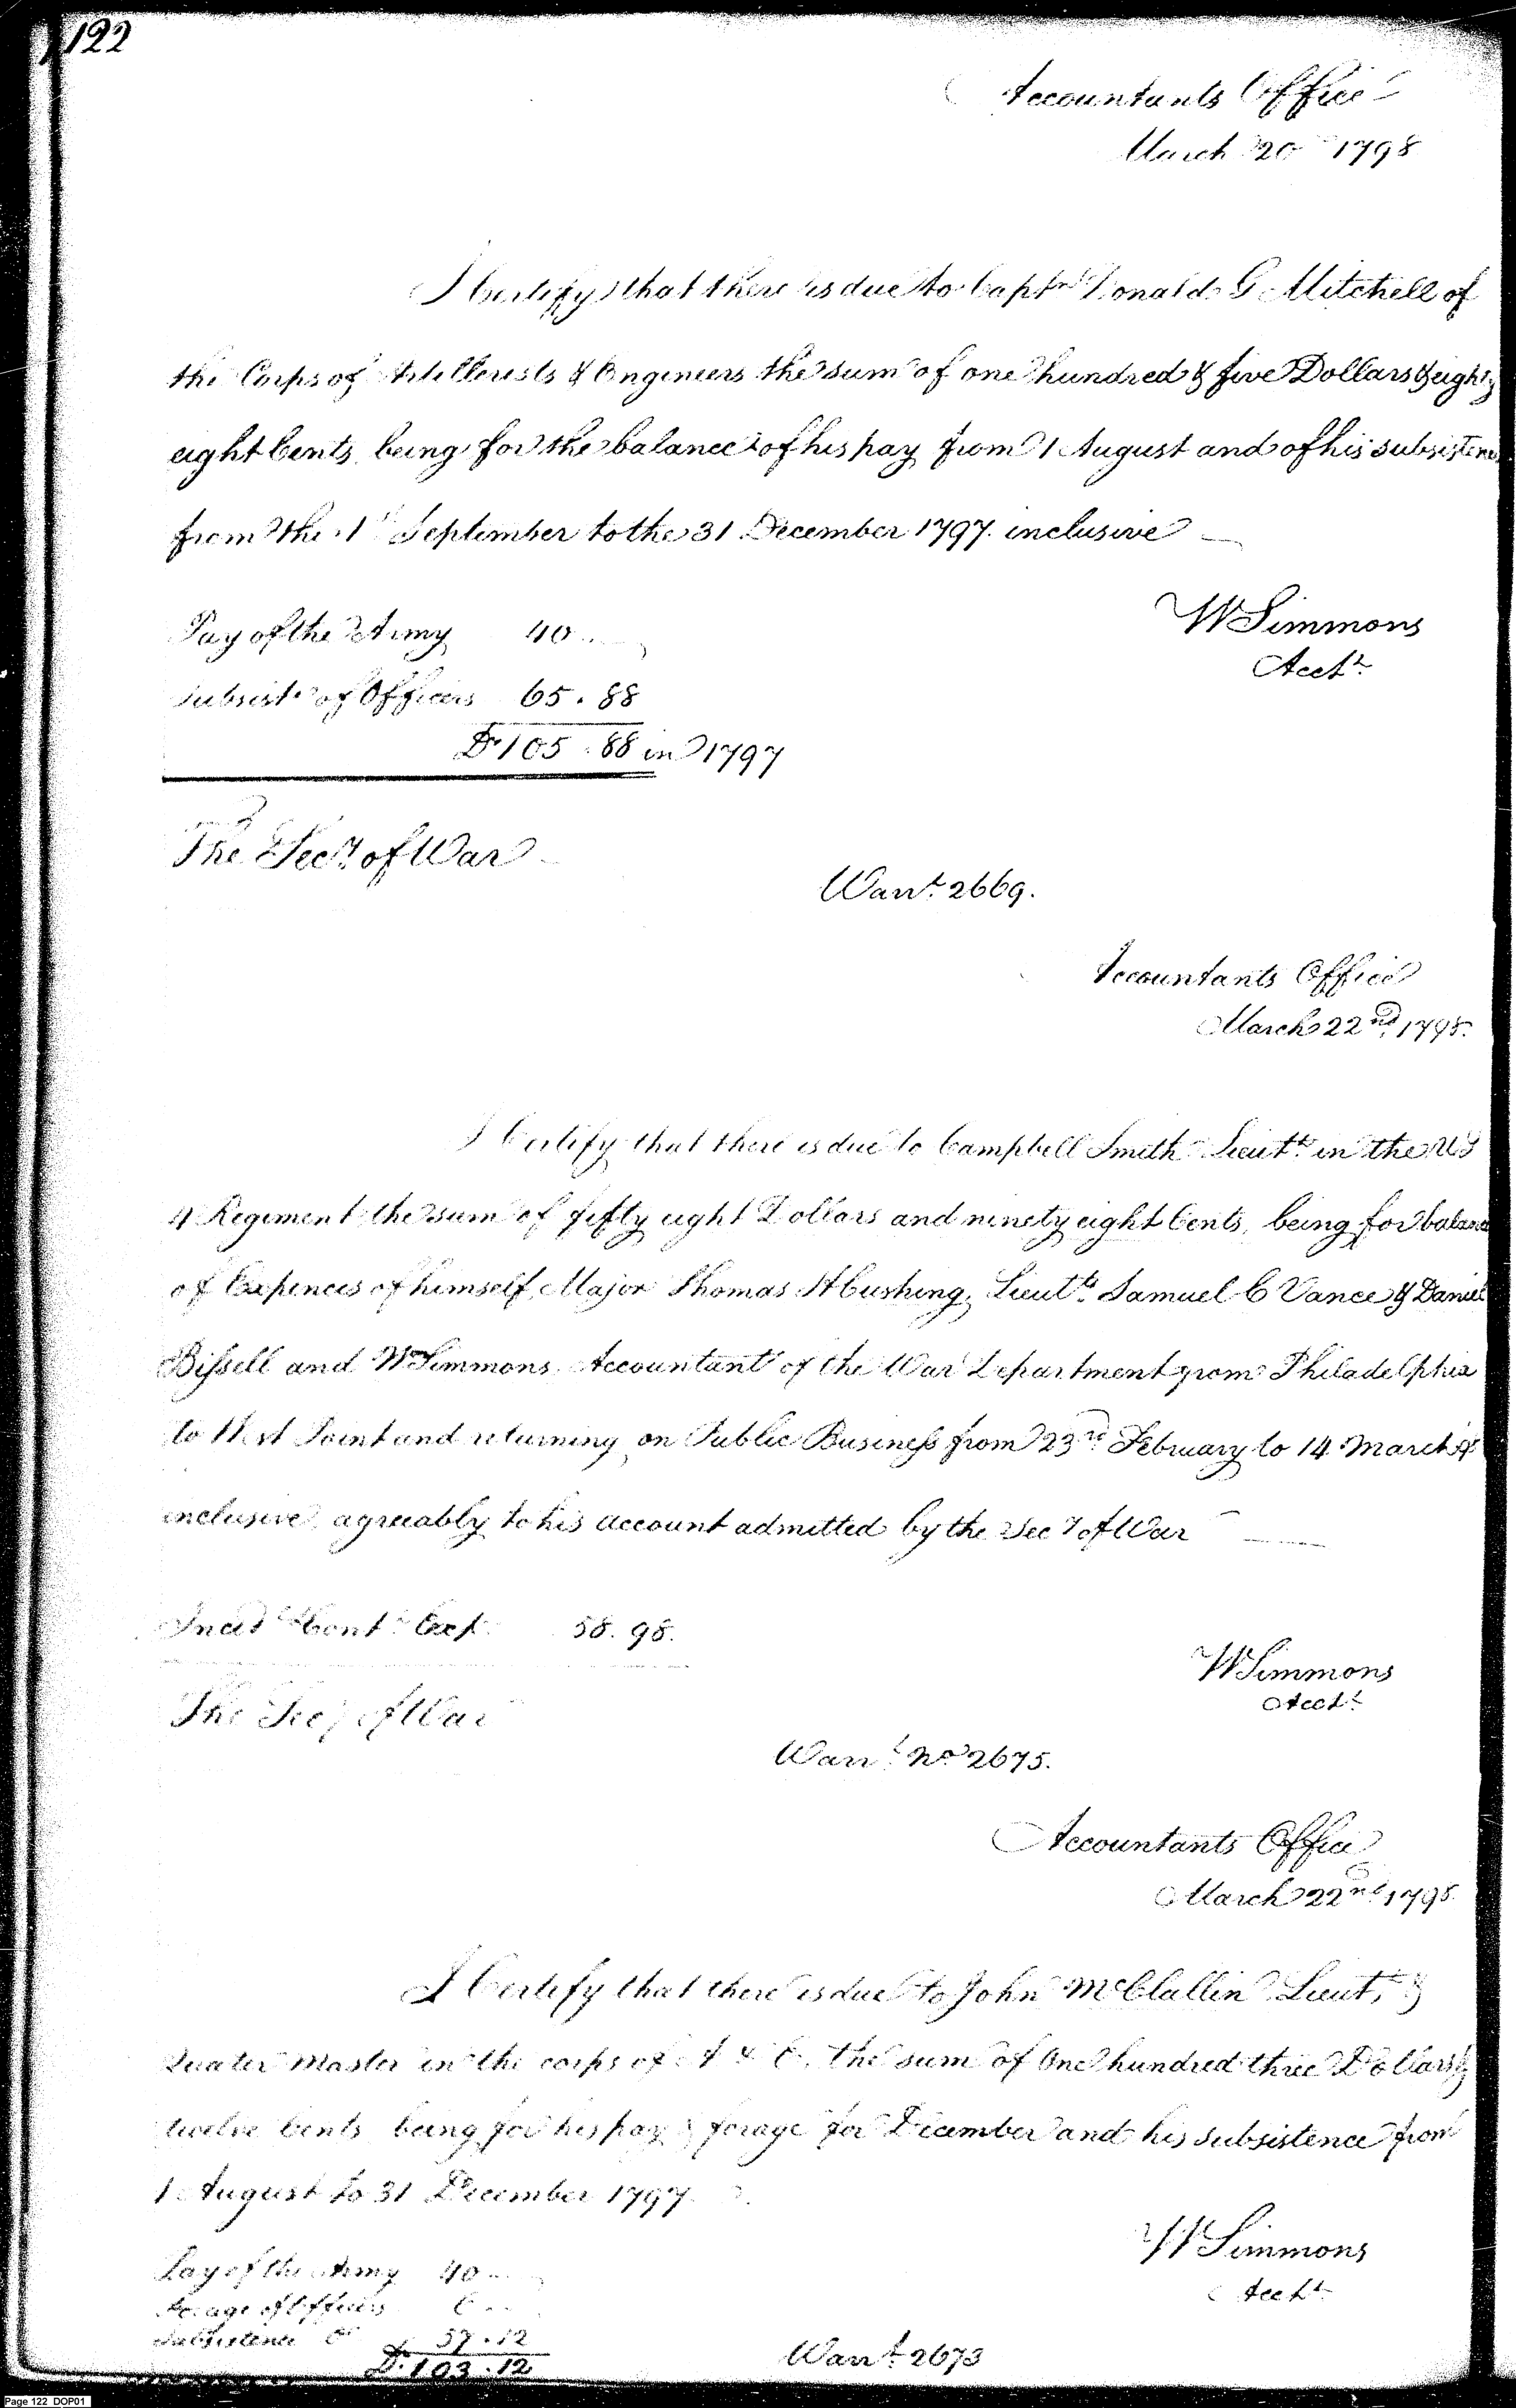 122
Accountants Office
March 20 1798
I Certify that there is due to Captn Donald G Mitchell of
the Corps of Artillerists & Engineers the sum of one hundred & five Dollars & eighty
eight Cents being for the balance of his pay from 1 August and of his subsistence
from the 1st September to the 31 December 1797. inclusive
W Simmons
Acct.
Pay of the Army 40..
Subsist. of Officers 65.88
D. 105.88 in 1797
The Secy. of War
Warrt. 2669.
Accountants Office
March 22nd, 1798.
I Certify that there is due to Campbell Smith Lieutt. in the US
4 Regiment the sum of fifty eight Dollars and ninety eight Cents, being for balance
of Expences of himself, Major Thomas H Cushing, Lieutts. Samuel C Vance & Daniel
Bissell and W Simmons Accountant of the War Department from Philadelphia
to West Point and returning on Public Business from 23rd February to 14 March
inclusive agreeably to his account admitted by the Secy of War
Incidl. Cont. Exp. 58.98.
W Simmons
Acct.
The Secy of War
Warrt. No 2675.
Accountants Office
March 22nd 1798.
I Certify that there is due to John McClallin Lieut, &
Quater Master in the corps of A & E. the sum of One hundred three Dollars &
twelve Cents being for his pay & forage for December and his subsistence from
1 August to 31 December 1797.
W Simmons
Acct.
Pay of the Army 40..
Forage of Officers 6..
Subsistence Do 57.12
D. 103.12
Warrt. 2673
Page 122 DOP01